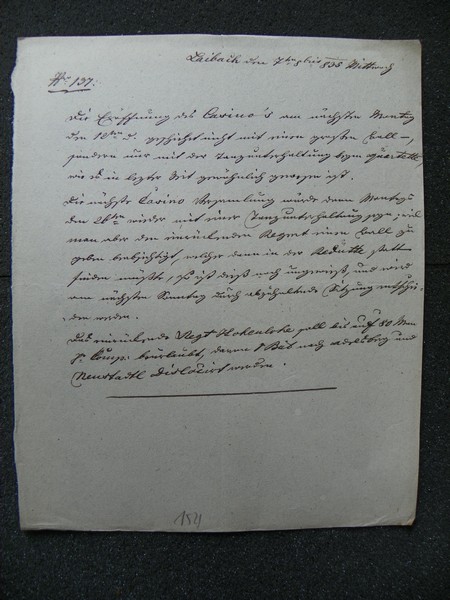 Laibach den 7ten 835 Mittwoch
No 137.
Die Eröffnung des Casino's am nächsten Montag
den 12ten d. geschieht nicht mit einen großen Ball –,
sondern nur mit der Tanzunterhaltung beym quartett,
wie es in lezter Zeit gewöhnlich gewesen ist.
Die nächste Casino Versamlung würde dann Montags
den 26ten wieder mit einer Tanzunterhaltung seyn, weil
man aber dem einrückenden Regmt einen Ball zu
geben beabsichtigt, welcher dann in der Redutte statt
finden müßte, so ist dieß noch ungewiß, und wird
am nächsten Sontag durch abzuhaltende Sitzung entschie-
den werden.
Das einrückende Regt Hohenlohe soll bis auf 80 Man
pr Comp. beurlaubt, davon 1 Bat nach Adelsberg und
Neustadtl dislocirt werden.